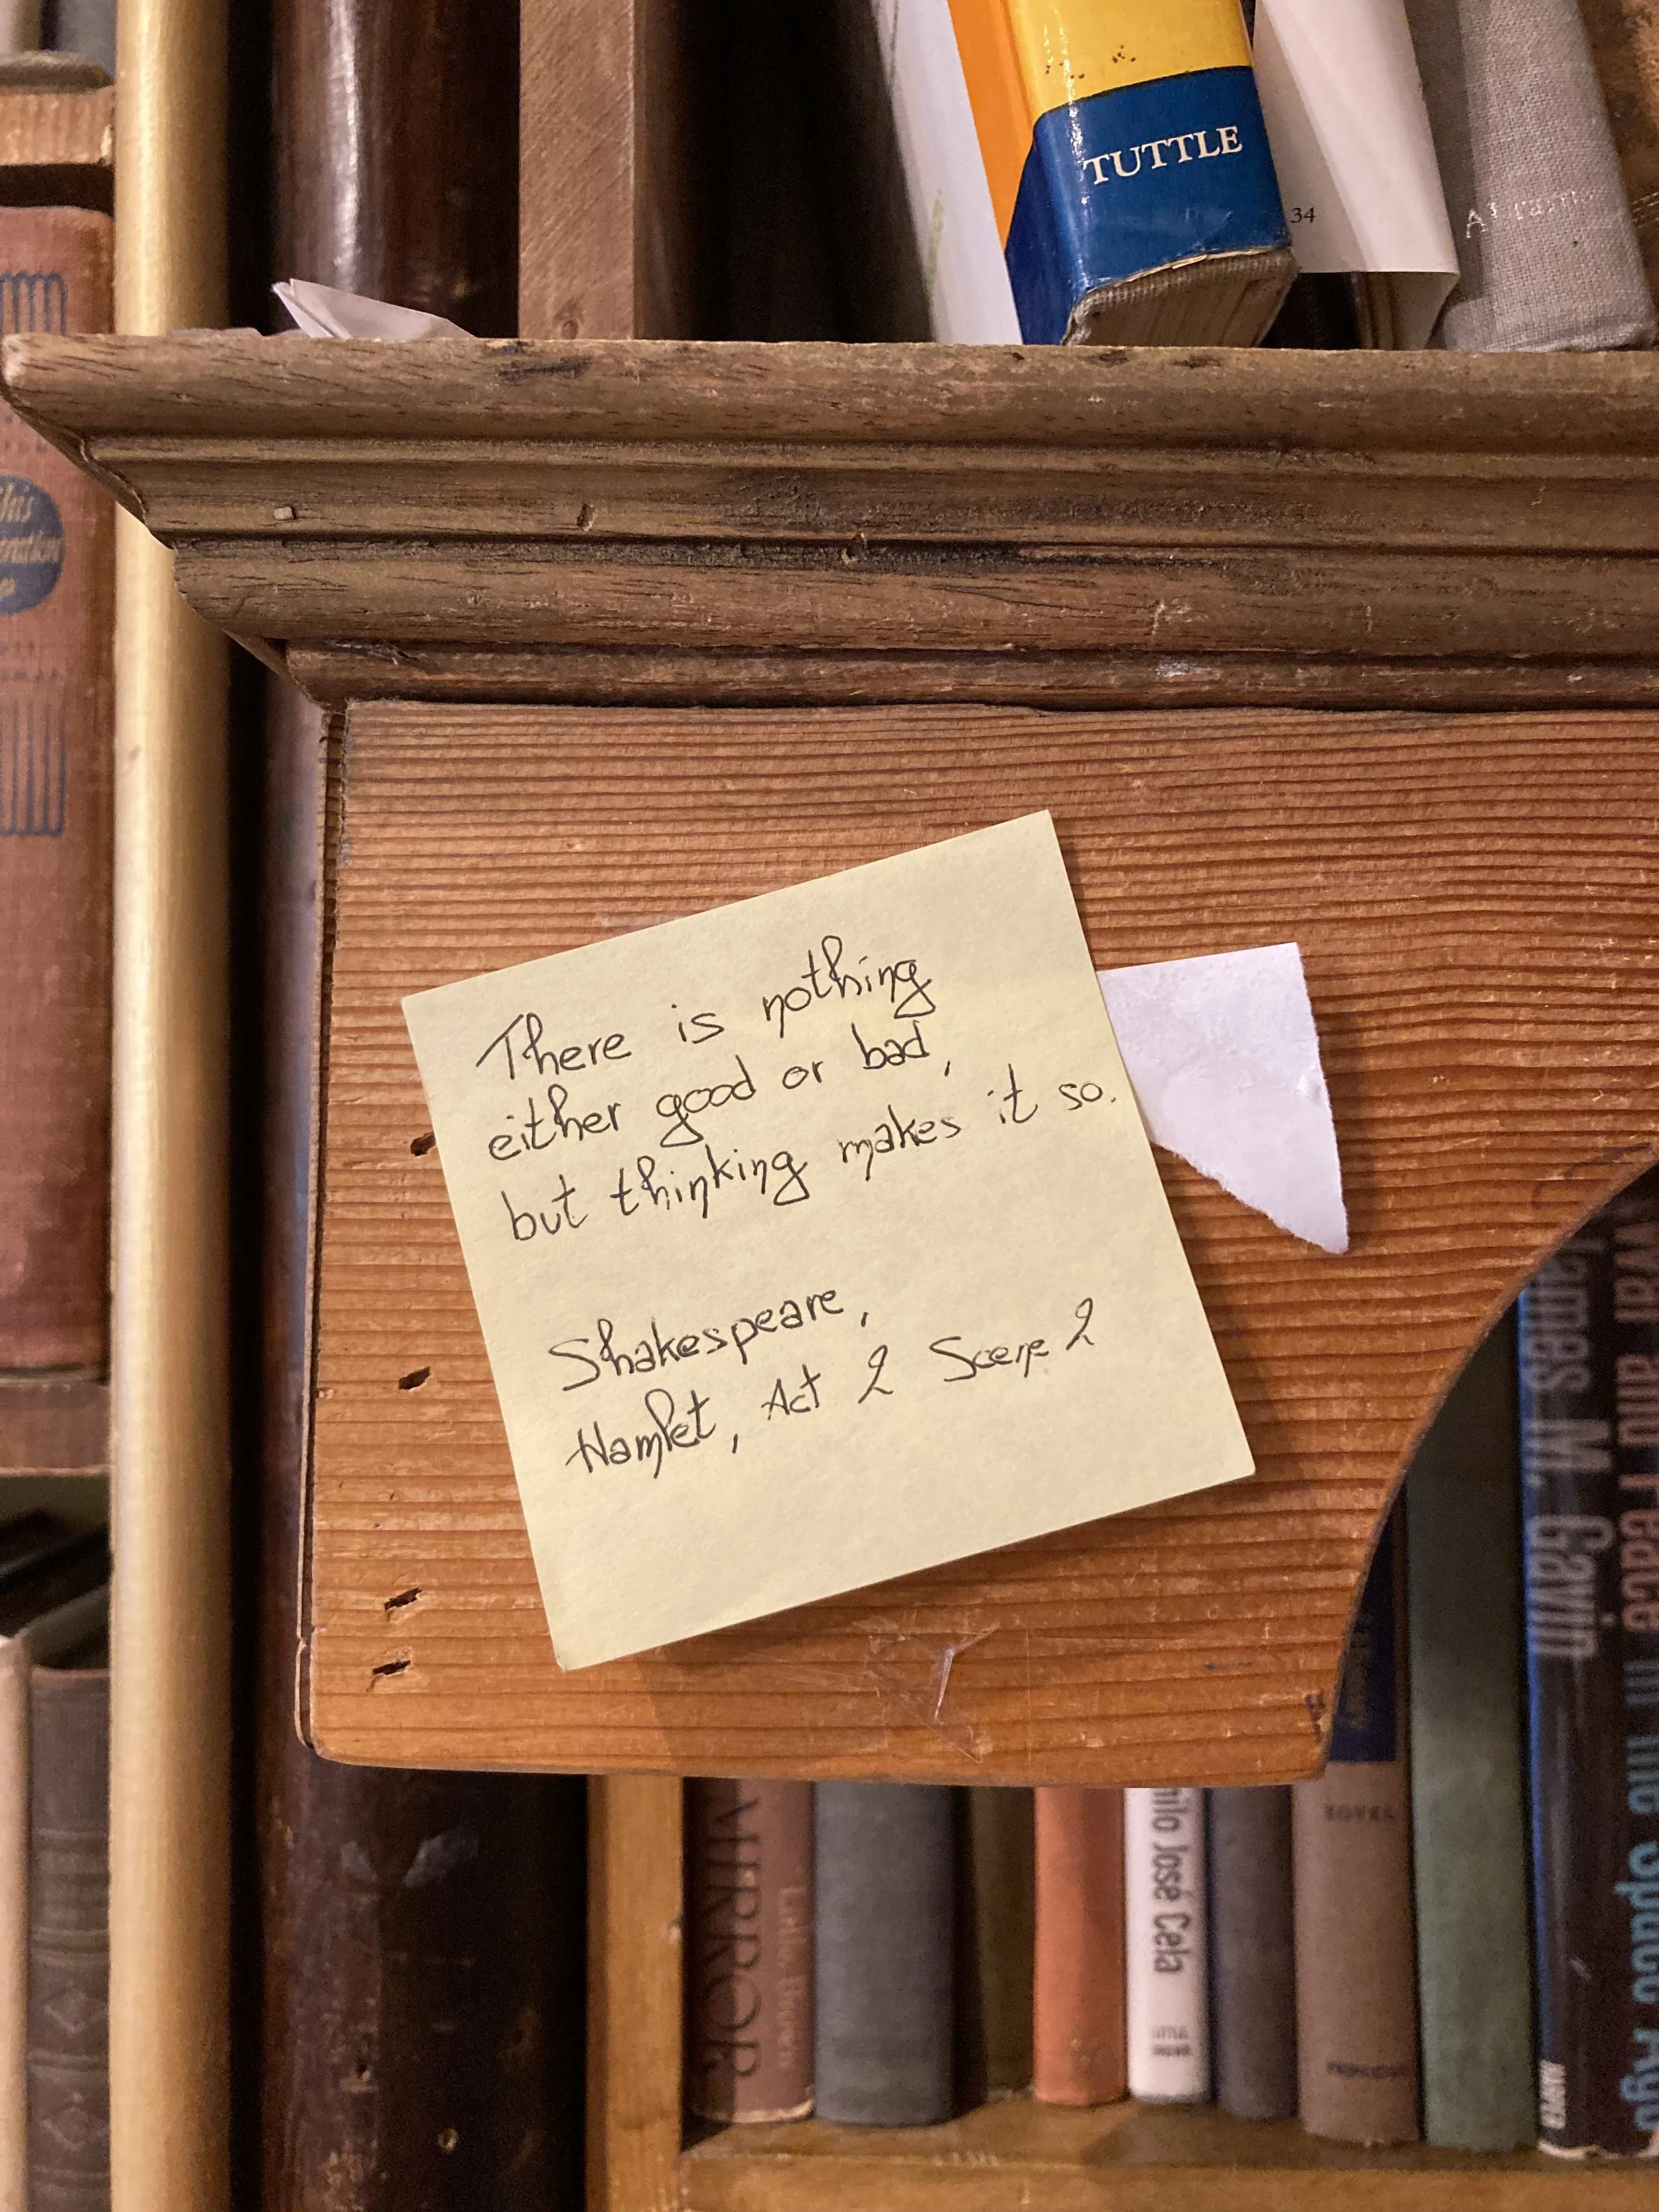 TUTTLE
34
There is nothing
either good or bad,
but thinking makes it so.
Shakespeare,
Hamlet, Act 2 Scene 2
MIRROR
Little, Brown
José Cela
LITTLE
BROWN
NOVEL
James M. Gavin
War and Peace in the Space Age
HARPER